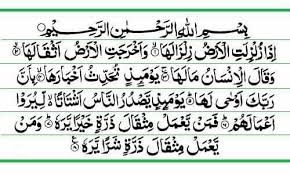 بِسْمِ اللهِ الرَّحْمٰنِ الرَّحِيْمِ
اِذَا زُلْزِلَتِ الْاَرْضُ زِلْزَالَهَا ۙ۱ وَاَخْرَجَتِ الْاَرْضُ اَثْقَالَهَا ۙ۲
وَقَالَ الْاِنْسَانُ مَا لَهَا ۚ۳ يَوْمَىِٕذٍ تُحَدِّثُ اَخْبَارَهَا ۙ۴ بِاَنَّ
رَبَّكَ اَوْحٰى لَهَا ؕ۵ يَوْمَىِٕذٍ يَّصْدُرُ النَّاسُ اَشْتَاتًا ۙ۬ لِّيُرَوْا
اَعْمَالَهُمْ ؕ۶ فَمَنْ يَّعْمَلْ مِثْقَالَ ذَرَّةٍ خَيْرًا يَّرَهٗ ؕ۷ وَمَنْ
يَّعْمَلْ مِثْقَالَ ذَرَّةٍ شَرًّا يَّرَهٗ ۸